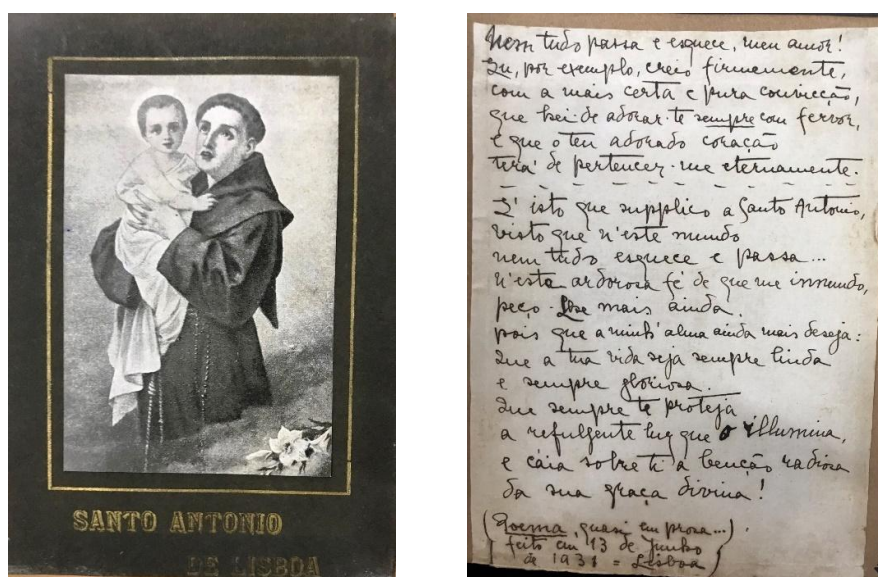 SANTO ANTONIO
DE LISBOA
Nem tudo passa e esquece, meu amor!
Eu, por exemplo, creio firmemente,
com a mais certa e pura convicção,
que hei-de adorar-te sempre com fervor,
e que o teu adorado coração
terá de pertencer-me eternamente.
E' isto que supplico a Santo Antonio,
visto que n'este mundo
nem tudo esquece e passa...
N'esta ardorosa fé de que me innundo,
peço-lhe mais ainda.
pois que a minh'alma ainda mais deseja:
Que a tua vida seja sempre linda
e sempre gloriosa.
Que sempre te proteja
a refulgente luz que o illumina,
e cáia sobre ti a benção radiosa
da sua graça divina!
(Poema, quasi em prosa...)
feito em 13 de Junho
de 1931 = Lisboa)